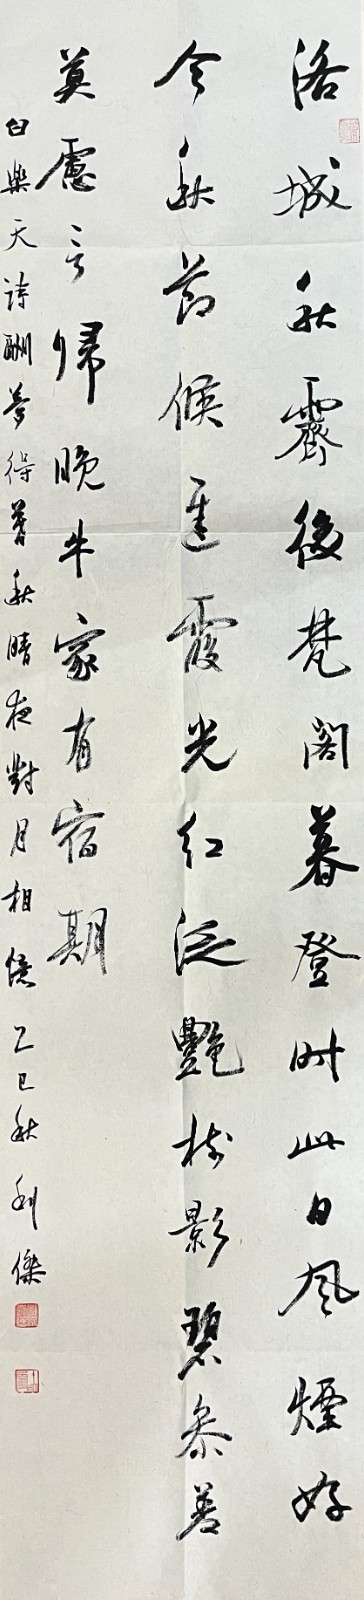 洛城秋霽後梵閣暮登時此日風煙好
今秋節候遲霞光紅泛艷樹影碧參差
莫慮言歸晚牛家有宿期
白樂天詩酬夢得暮秋晴夜對月相憶 乙巳秋 利傑